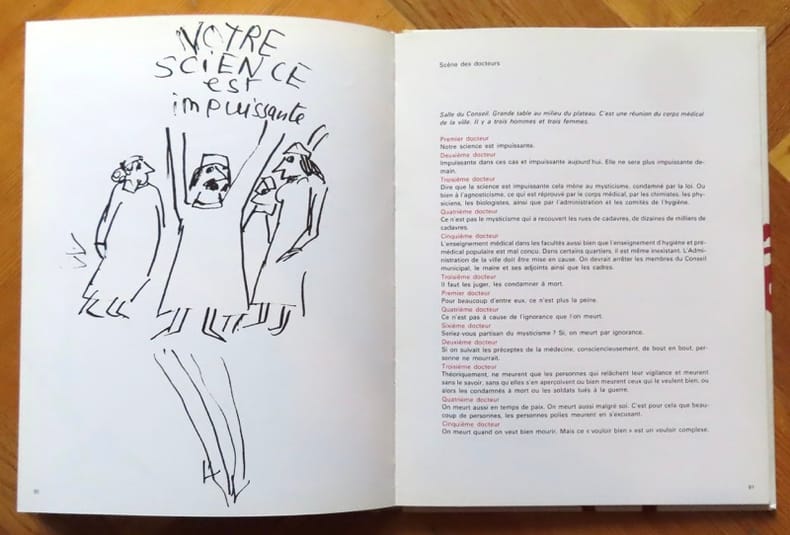 NOTRE
SCIENCE
est
impuissante
90
Scène des docteurs
Salle du Conseil. Grande table au milieu du plateau. C'est une réunion du corps médical
de la ville. Il y a trois hommes et trois femmes.
Premier docteur
Notre science est impuissante.
Deuxième docteur
Impuissante dans ces cas et impuissante aujourd'hui. Elle ne sera plus impuissante de-
main.
Troisième docteur
Dire que la science est impuissante cela mène au mysticisme, condamné par la loi. Ou
bien à l'agnosticisme, ce qui est réprouvé par le corps médical, par les chimistes, les phy-
siciens, les biologistes, ainsi que par l'administration et les comités de l'hygiène.
Quatrième docteur
Ce n'est pas le mysticisme qui a recouvert les rues de cadavres, de dizaines de milliers de
cadavres.
Cinquième docteur
L'enseignement médical dans les facultés aussi bien que l'enseignement d'hygiène et pré-
médical populaire est mal conçu. Dans certains quartiers, il est même inexistant. L'Admi-
nistration de la ville doit être mise en cause. On devrait arrêter les membres du Conseil
municipal, le maire et ses adjoints ainsi que les cadres.
Troisième docteur
Il faut les juger, les condamner à mort.
Premier docteur
Pour beaucoup d'entre eux, ce n'est plus la peine.
Quatrième docteur
Ce n'est pas à cause de l'ignorance que l'on meurt.
Sixième docteur
Seriez-vous partisan du mysticisme ? Si, on meurt par ignorance.
Deuxième docteur
Si on suivait les préceptes de la médecine, consciencieusement, de bout en bout, per-
sonne ne mourrait.
Troisième docteur
Théoriquement, ne meurent que les personnes qui relâchent leur vigilance et meurent
sans le savoir, sans qu'elles s'en aperçoivent ou bien meurent ceux qui le veulent bien, ou
alors les condamnés à mort ou les soldats tués à la guerre.
Quatrième docteur
On meurt aussi en temps de paix. On meurt aussi malgré soi. C'est pour cela que beau-
coup de personnes, les personnes polies meurent en s'excusant.
Cinquième docteur
On meurt quand on veut bien mourir. Mais ce « vouloir bien » est un vouloir complexe.
91